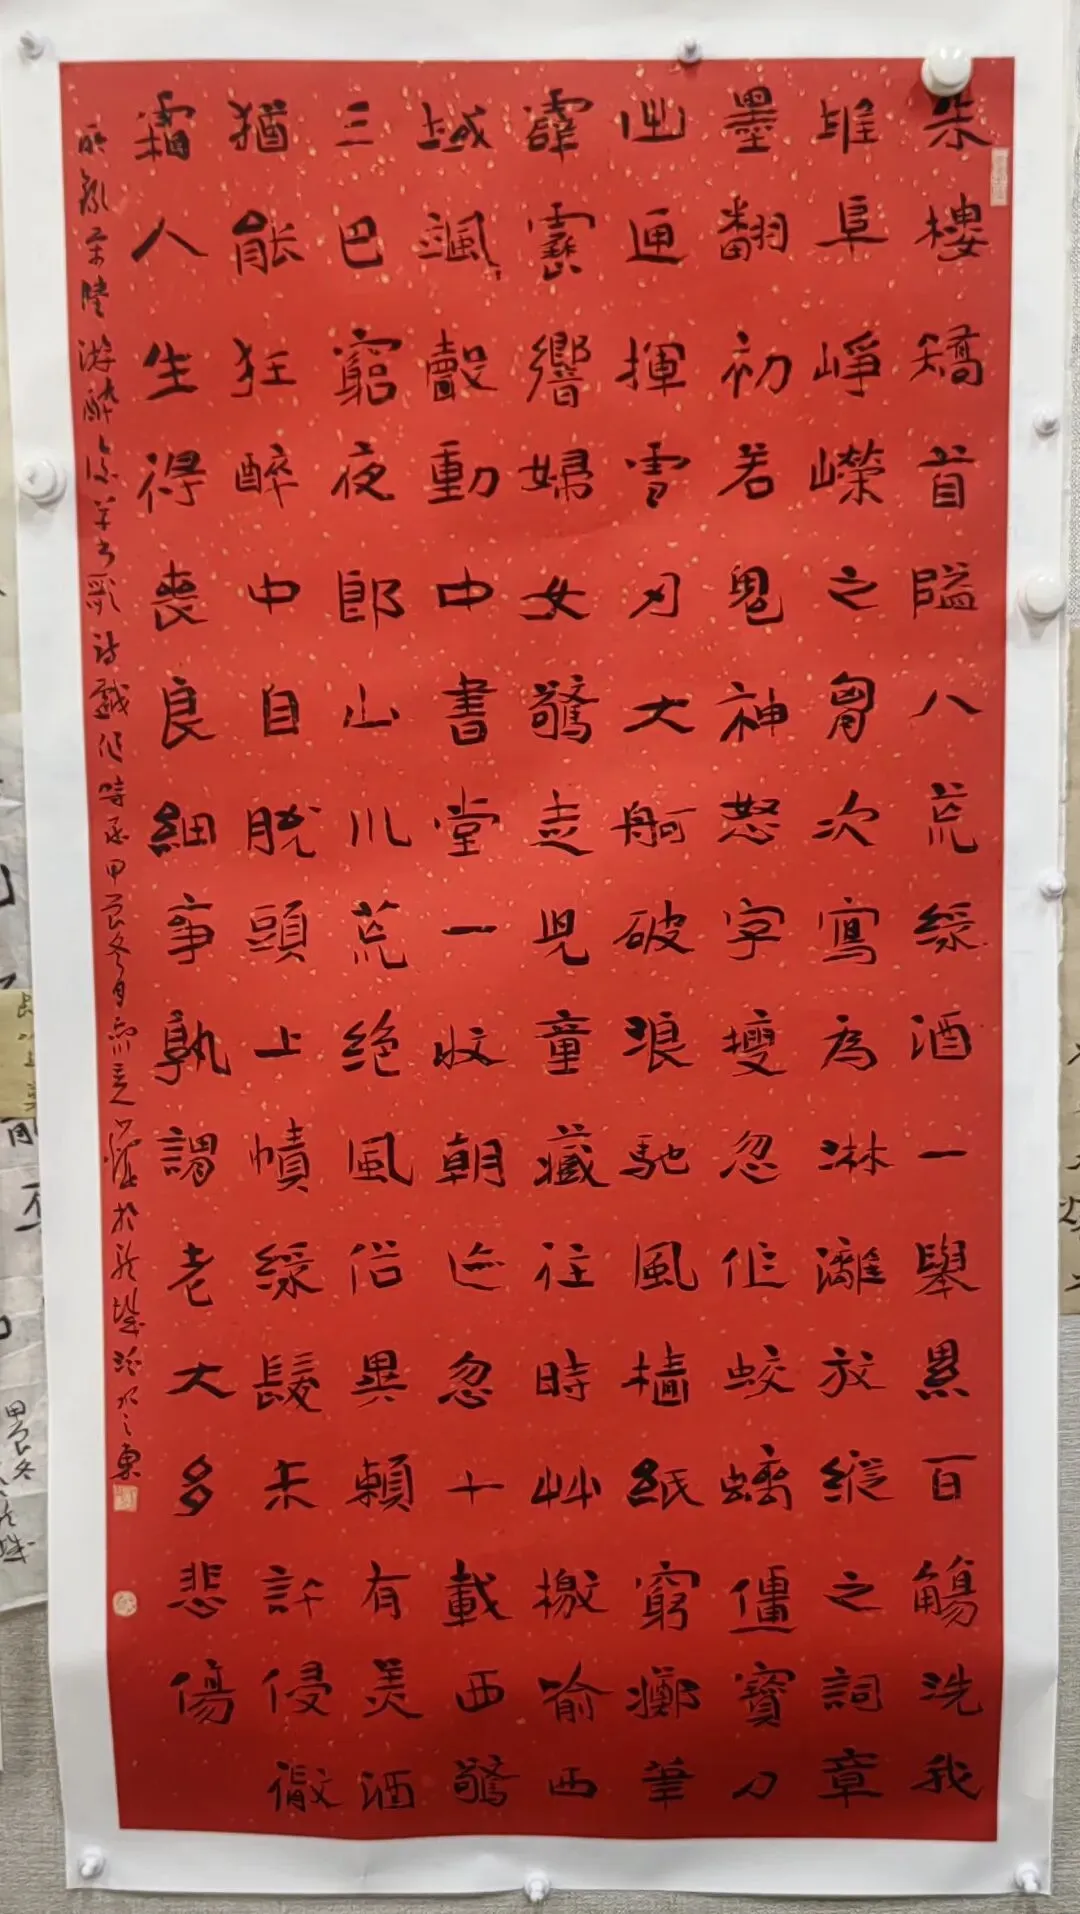 朱樓矯首隘八荒綠酒一舉累百觴洗我
堆阜崢嶸之胷次寫為淋漓放縱之詞章
墨翻初若鬼神怒字瘦忽作蛟螭僵寶刀
出匣揮雪刃大舸破浪馳風檣紙窮擲筆
霹靂響婦女驚走兒童藏往時艸檄喻西
域颯〻聲動中書堂一收朝迹忽十載西驚
三巴窮夜郎山川荒絕風俗異賴有美酒
猶能狂醉中自脫頭上幘綠髮未許侵微
霜人生得喪良細事孰謂老大多悲傷
錄宋陸游醉後草書歌詩戲作時甲辰冬月於龍城之東